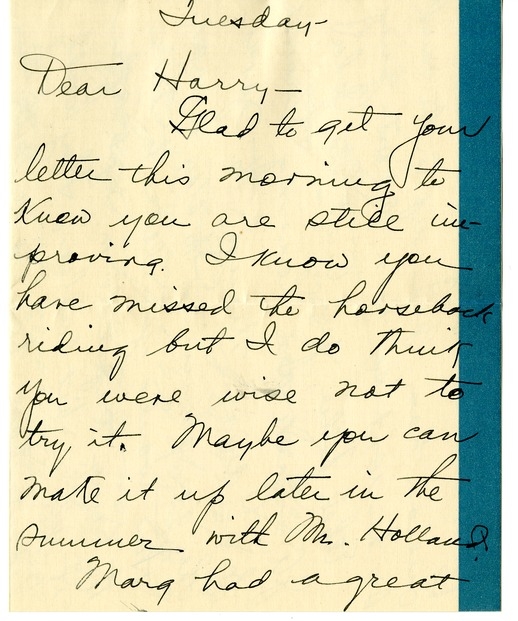 Tuesday-
Dear Harry-
Glad to get your
letter this morning to
know you are still im-
proving. I know you
have missed the horseback
riding but I do think
you were wise not to
try it. Maybe you can
make it up later in the
summer with Mr. Holland.
Marg had a great